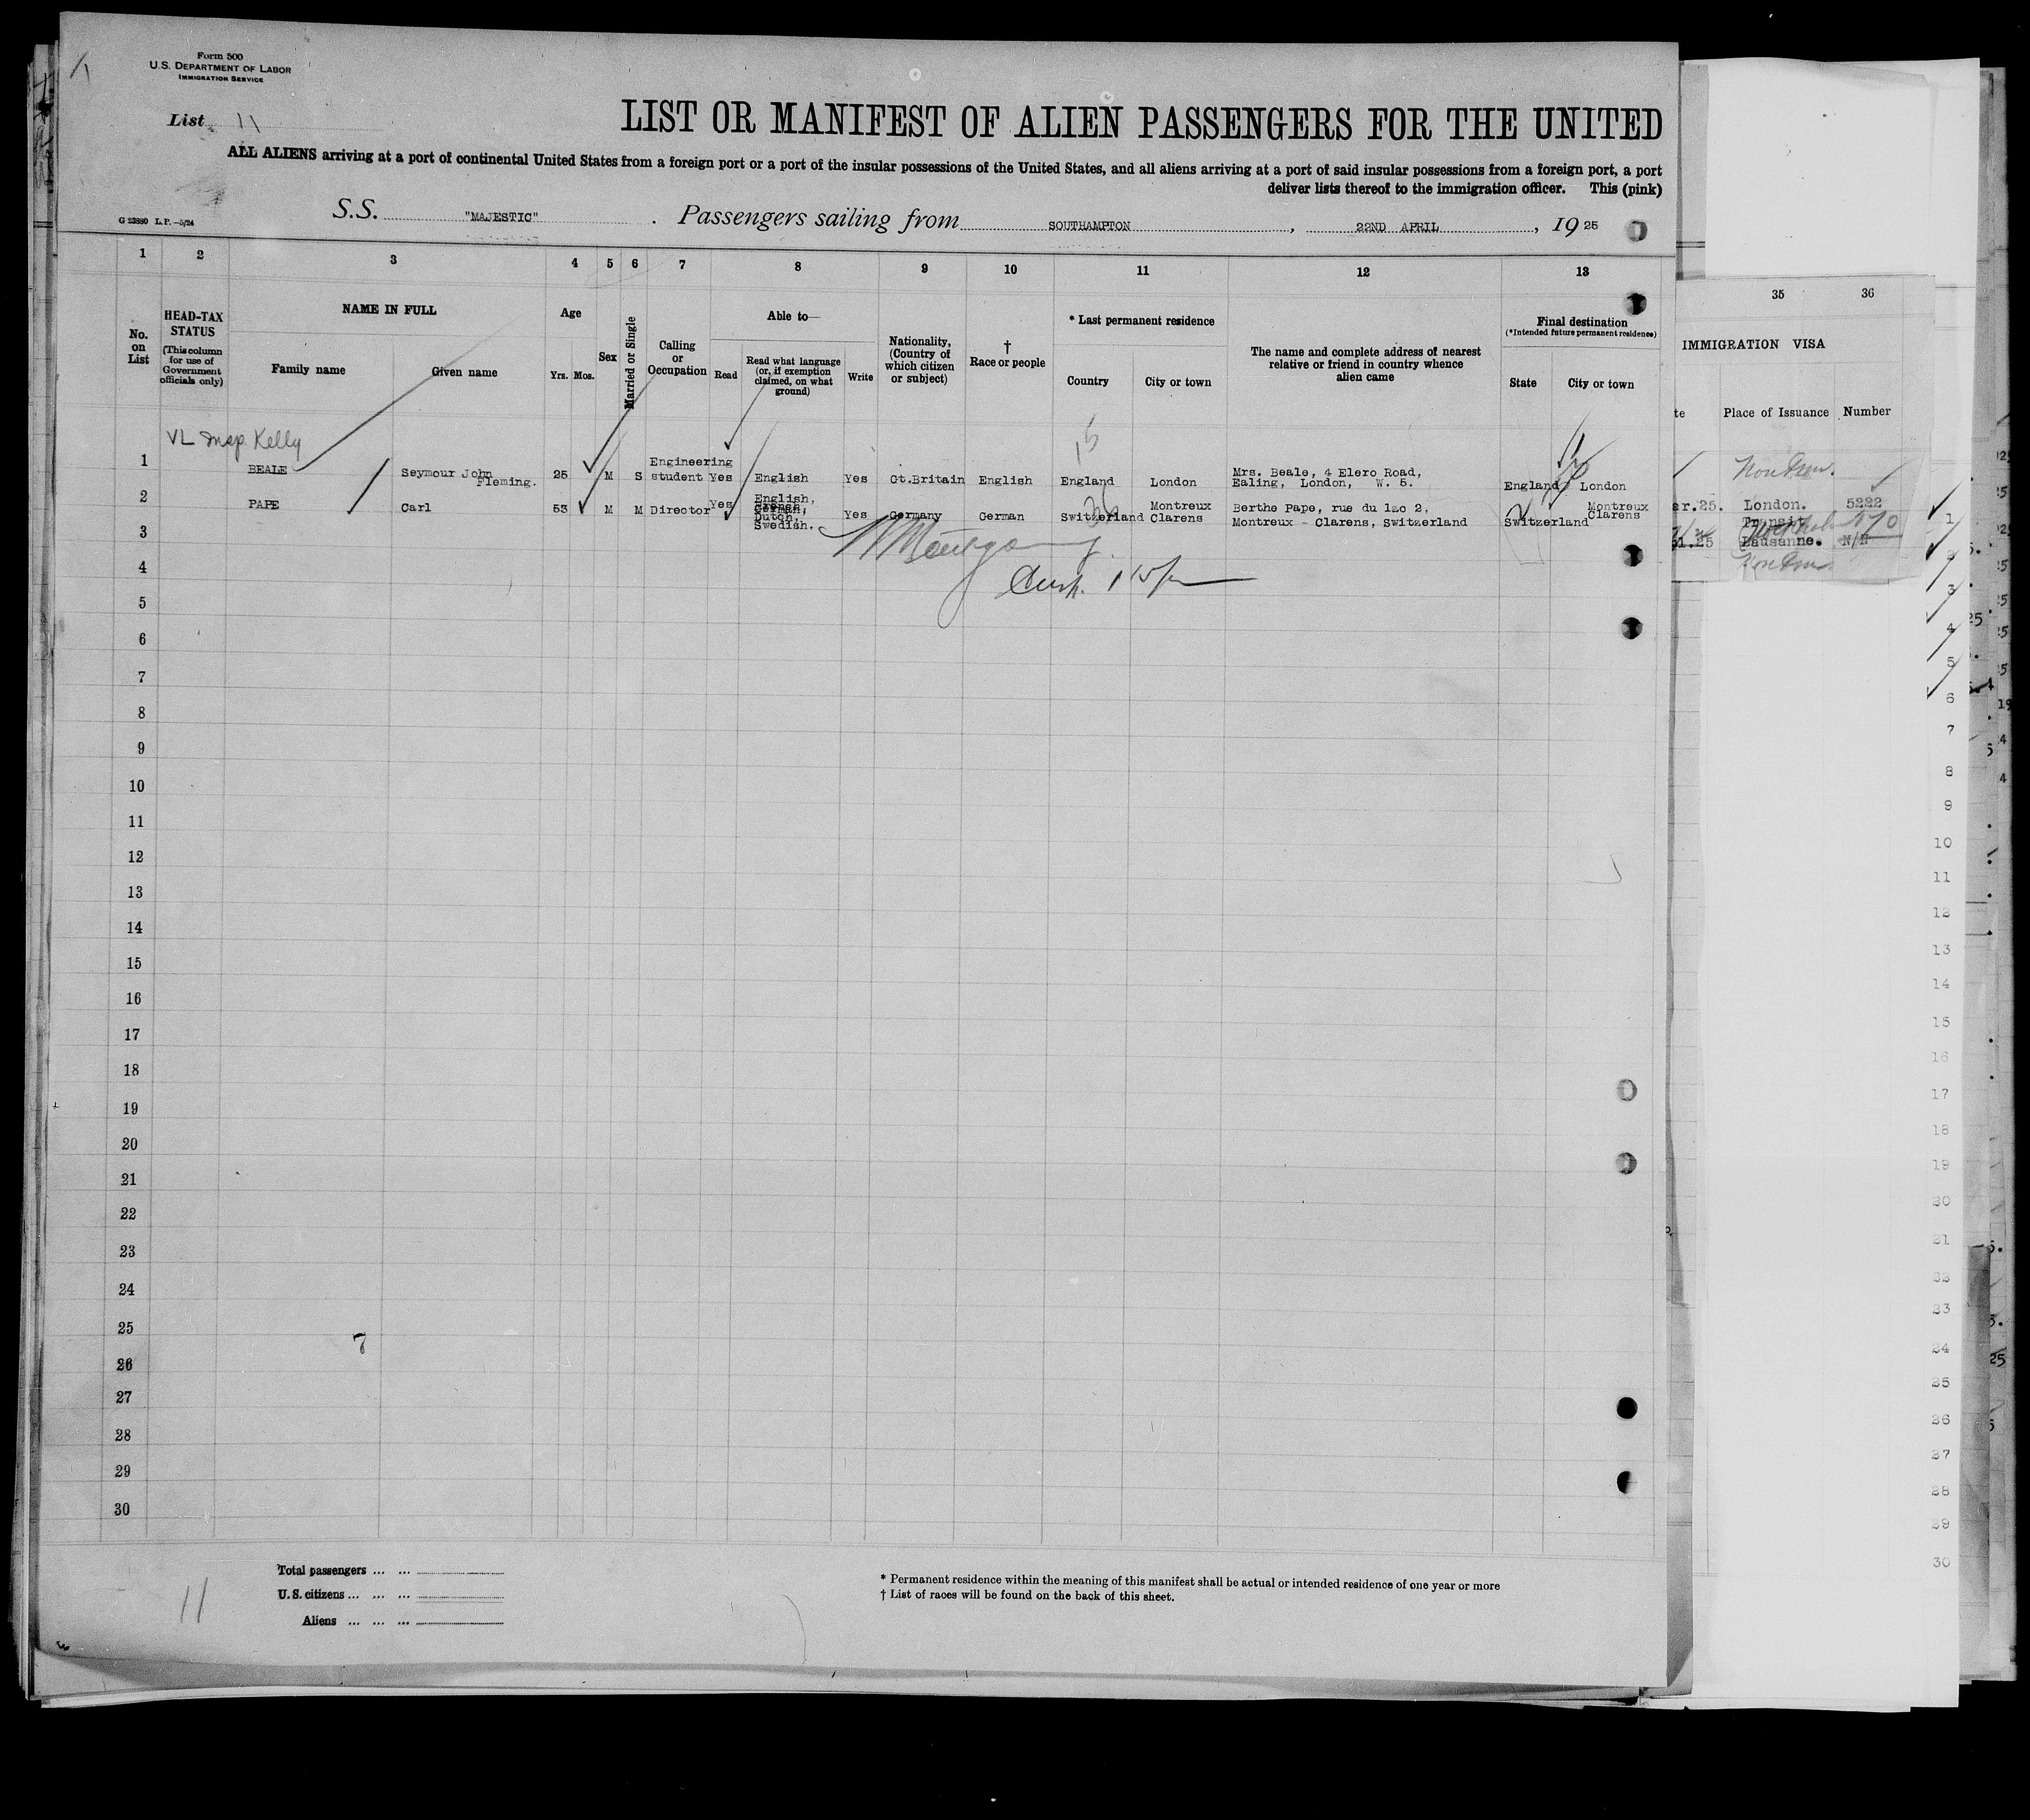 Form 500
U.S. DEPARTMENT OF LABOR
IMMIGRATION SERVICE
List 11
LIST OR MANIFEST OF ALIEN PASSENGERS FOR THE UNITED
ALL ALIENS arriving at a port of continental United States from a foreign port or a port of the insular possessions of the United States, and all aliens arriving at a port of said insular possessions from a foreign port, a port
deliver lists thereof to the immigration officer. This (pink)
G 23880 L.P.—5/24
S.S. "MAJESTIC" . Passengers sailing from SOUTHAMPTON , 22ND APRIL , 19 25
1 2 3 4 5 6 7 8 9 10 11 12 13
35 36
No. on List
HEAD-TAX STATUS
(This column for use of Government officials only)
NAME IN FULL
Family name
Given name
Age
Yrs. Mos.
Sex
Married or Single
Calling or Occupation
Able to—
Read
Read what language (or, if exemption claimed, on what ground)
Write
Nationality, (Country of which citizen or subject)
† Race or people
* Last permanent residence
Country
City or town
The name and complete address of nearest relative or friend in country whence alien came
Final destination
(*Intended future permanent residence)
State
City or town
IMMIGRATION VISA
te
Place of Issuance
Number
VL Insp. Kelly
15
1 BEALE Seymour John Fleming. 25 M S Engineering student Yes English Yes Gt.Britain English England London Mrs. Beale, 4 Elero Road, Ealing, London, W. 5. England London
ar.25. London. 5222
2 PAPE Carl 53 M M Director Yes English, German, Dutch, Swedish. Yes Germany German Switzerland Montreux Clarens Berthe Pape, rue du lac 2, Montreux - Clarens, Switzerland Switzerland Montreux Clarens
Transit
.25 Lausanne. N/N
3
4
5
6
7
8
9
10
11
12
13
14
15
16
17
18
19
20
21
22
23
24
25
26
27
28
29
30
7
11
Total passengers ... ...
U.S. citizens ... ... ...
Aliens ... ... ...
* Permanent residence within the meaning of this manifest shall be actual or intended residence of one year or more
† List of races will be found on the back of this sheet.